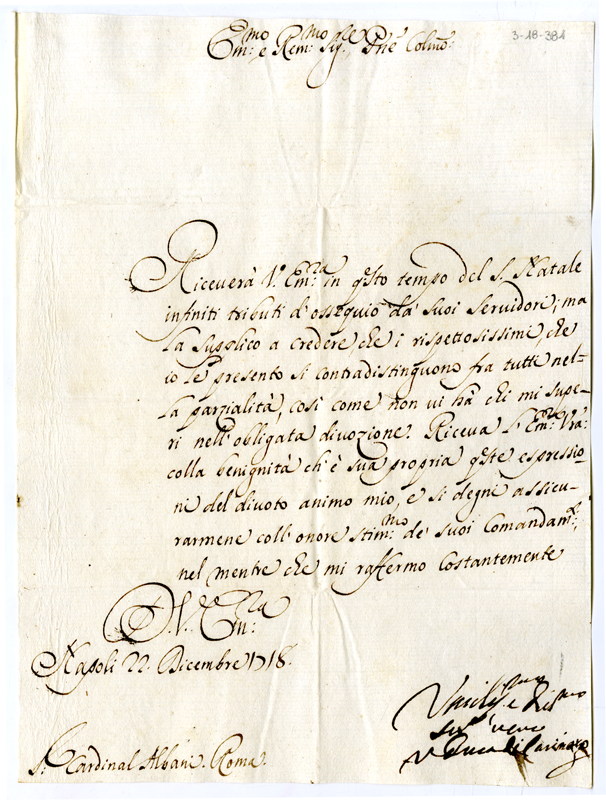 3-18-384
Em:mo e Rem:mo Sig.re Prñe Colmo:
Riceverà V.a Em:za in qsto tempo del S. Natale
infiniti tributi d'ossequio da suoi servidori; ma
La supplico a credere, che i rispettosissimi, che
io Le presento si contradistinguono fra tutti nel-
la parzialità, così come non vi hà chi mi supe-
ri nell'obligata divozione. Riceva l'Em:za Vra:
colla benignità ch'è sua propria qste espressio-
ni del divoto animo mio, e si degni assicu-
rarmene coll'onore stim:mo de' suoi Comandam:ti,
nel mentre che mi raffermo costantemente
D. V. Em:za
Napoli 22. Dicembre 1718.
S.r Cardinal Albani. Roma.